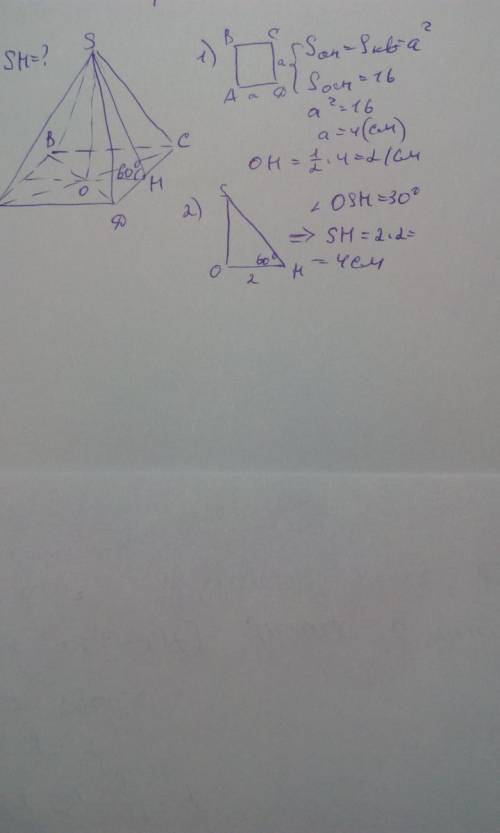 SH=?
S
B
C
O
60°
H
D
1)
B C
A a D
a
Sосн = Sкв = a²
Sосн = 16
a² = 16
a = 4 (см)
OH = 1/2 · 4 = 2 (см
2)
S
O
60°
H
2
∠ OSH = 30°
=> SH = 2·2 =
= 4 см